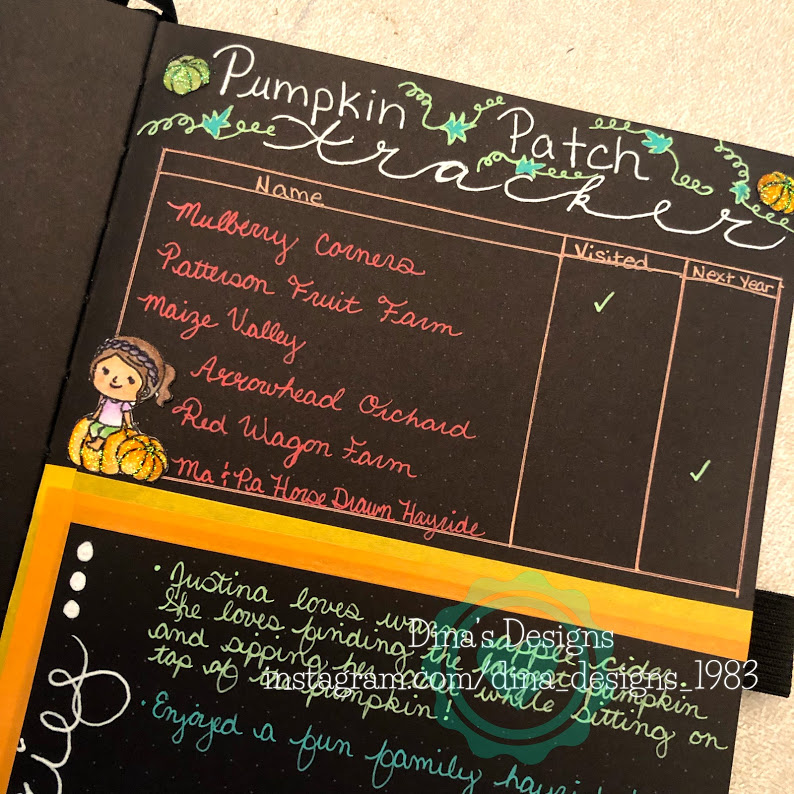 Pumpkin Patch
tracker
Name Visited Next Year
Mulberry Corners
Patterson Fruit Farm ✓
Maize Valley
Arrowhead Orchard
Red Wagon Farm ✓
Ma & Pa Horse Drawn Hayride
• Justina loves warm apple cider.
She loves finding the largest pumpkin
and sipping her while sitting on
top of pumpkin!
• Enjoyed a fun family
Dina's Designs
instagram.com/dina_designs_1983